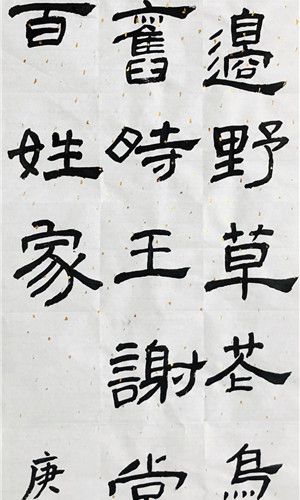 邊野草花烏
舊時王謝堂
百姓家
庚